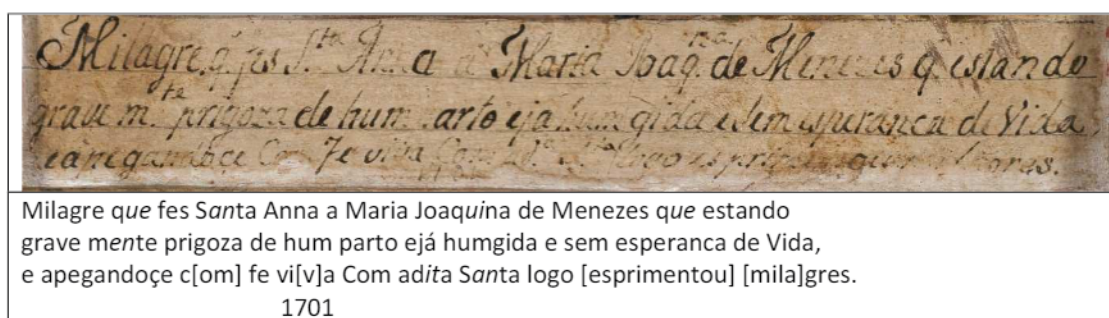 Milagre q. fes S.ta Anna a Maria Joaq.na de Menezes q. estando
grave m.te prigoza de hum parto ejá humgida e sem esperanca de Vida
e apegandoçe Com Fe viva Com ad.ta S.ta logo
Milagre que fes Santa Anna a Maria Joaquina de Menezes que estando
grave mente prigoza de hum parto ejá humgida e sem esperanca de Vida,
e apegandoçe c[om] fe vi[v]a Com adita Santa logo [esprimentou] [mila]gres.
1701